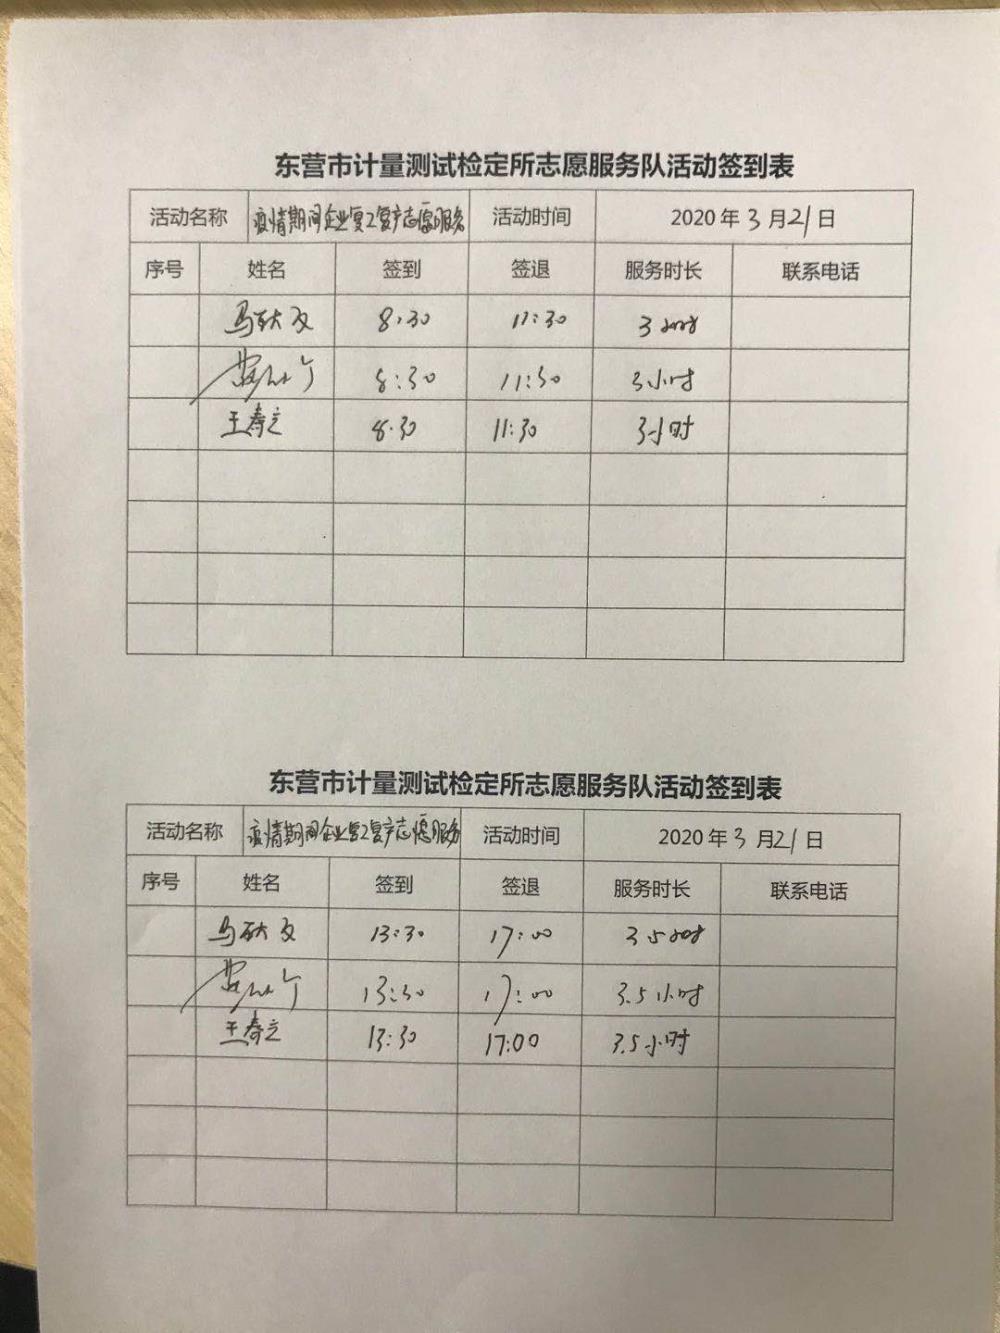 东营市计量测试检定所志愿服务队活动签到表
活动名称 疫情期间企业复工复产志愿服务 活动时间 2020年3月21日
序号 姓名 签到 签退 服务时长 联系电话
8:30 11:30 3小时
8:30 11:30 3小时
王寿之 8:30 11:30 3小时
东营市计量测试检定所志愿服务队活动签到表
活动名称 疫情期间企业复工复产志愿服务 活动时间 2020年3月21日
序号 姓名 签到 签退 服务时长 联系电话
13:30 17:00 3.5小时
13:30 17:00 3.5小时
王寿之 13:30 17:00 3.5小时